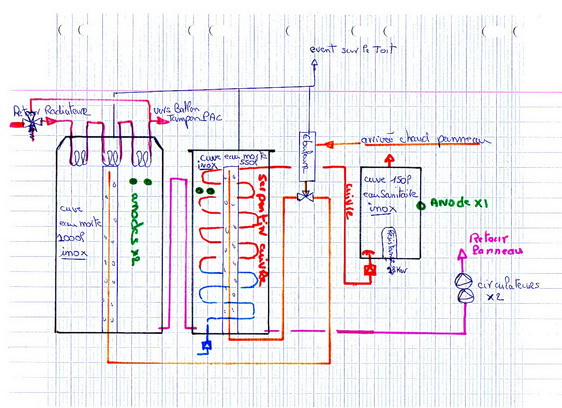 event sur le Toit
Retour Radiateur
vers Ballon
Tampon PAC
arrivée chaud panneau
cuve eau morte
inox 550l
cuve 150l
eau sanitaire
inox
cuve
eau morte
1000l
inox
anodes x2
serpentin cuivre
cuivre
ANODE X1
Retour
Panneau
circulateurs
x2